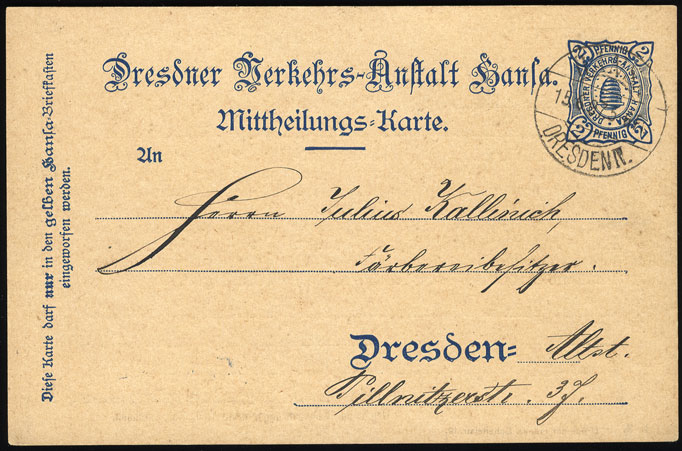 Dresdner Verkehrs-Anstalt Hansa.
Mittheilungs-Karte.
An
Herrn Julius Kallinich,
Färbereibesitzer.
Dresden- Altst.
Pillnitzerstr. 37.
Diese Karte darf nur in den gelben Hansa-Briefkasten
eingeworfen werden.
2 PFENNIG 2
DRESDNER VERKEHRS-ANSTALT HANSA
2 PFENNIG 2
DRESDEN IV.